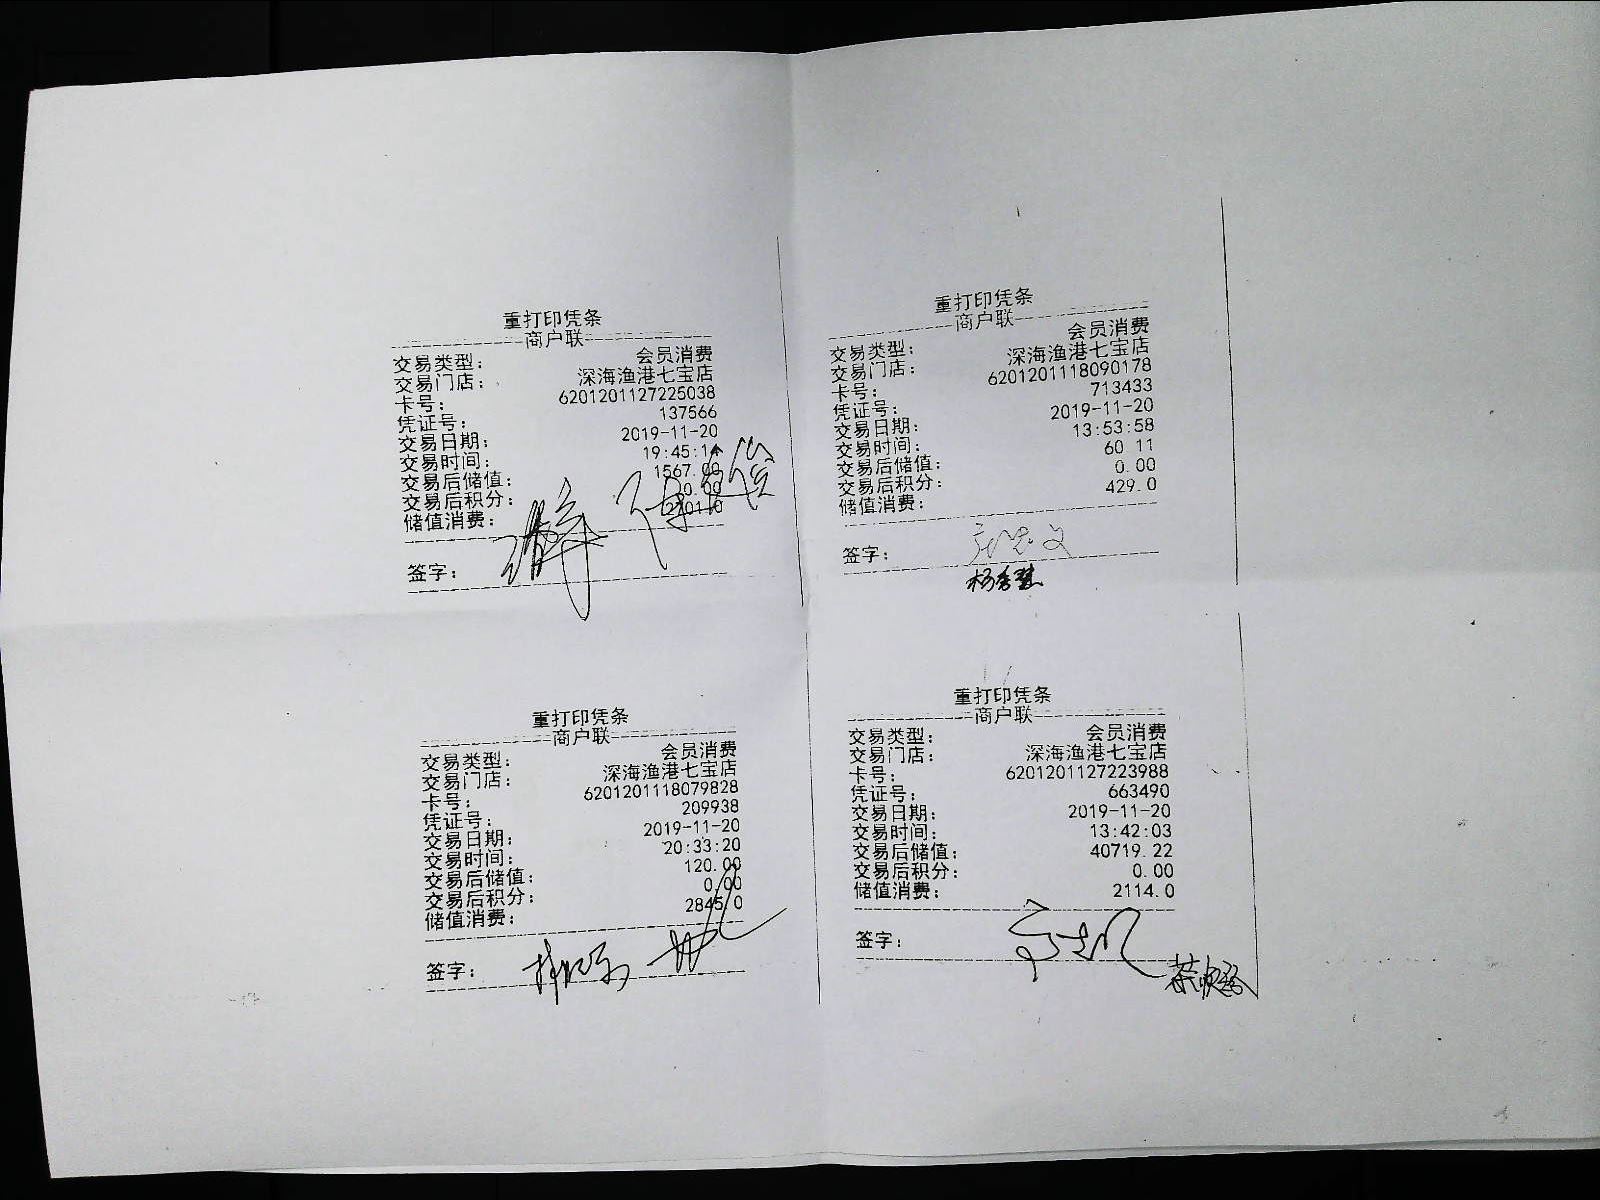 重打印凭条
商户联
交易类型： 会员消费
交易门店： 深海渔港七宝店
卡号： 6201201127225038
凭证号： 137566
交易日期： 2019-11-20
交易时间： 19:45:14
交易后储值： 1567.00
交易后积分： 0.00
储值消费：
签字：
重打印凭条
商户联
交易类型： 会员消费
交易门店： 深海渔港七宝店
卡号： 6201201118090178
凭证号： 713433
交易日期： 2019-11-20
交易时间： 13:53:58
交易后储值： 60 11
交易后积分： 0.00
储值消费： 429.0
签字：
重打印凭条
商户联
交易类型： 会员消费
交易门店： 深海渔港七宝店
卡号： 6201201118079828
凭证号： 209938
交易日期： 2019-11-20
交易时间： 20:33:20
交易后储值： 120.00
交易后积分： 0.00
储值消费： 2845.0
签字：
重打印凭条
商户联
交易类型： 会员消费
交易门店： 深海渔港七宝店
卡号： 6201201127223988
凭证号： 663490
交易日期： 2019-11-20
交易时间： 13:42:03
交易后储值： 40719.22
交易后积分： 0.00
储值消费： 2114.0
签字：